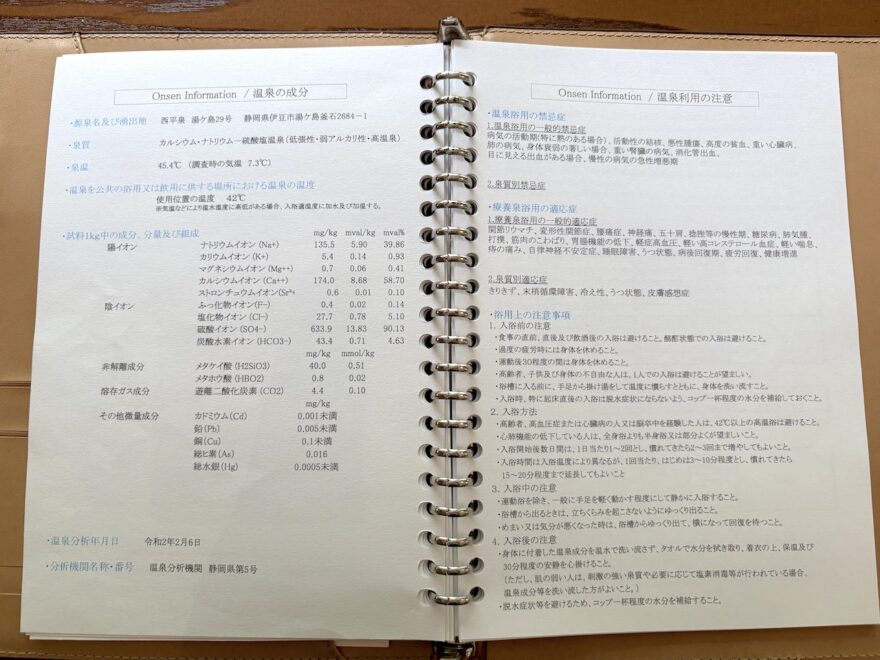 Onsen Information / 温泉の成分
・源泉名及び湧出地 西平泉 湯ケ島29号 静岡県伊豆市湯ケ島釜石2684-1
・泉質 カルシウム・ナトリウム-硫酸塩温泉(低張性・弱アルカリ性・高温泉)
・泉温 45.4℃ (調査時の気温 7.3℃)
・温泉を公共の浴用又は飲用に供する場所における温泉の温度
使用位置の温度 42℃
※気温などにより温水温度に高低がある場合、入浴適温度に加水及び加温する。
・試料1kg中の成分、分量及び組成 mg/kg mval/kg mval%
陽イオン ナトリウムイオン(Na+) 135.5 5.90 39.86
カリウムイオン(K+) 5.4 0.14 0.93
マグネシウムイオン(Mg++) 0.7 0.06 0.41
カルシウムイオン(Ca++) 174.0 8.68 58.70
ストロンチュウムイオン(Sr++ 0.6 0.01 0.10
陰イオン ふっ化物イオン(F-) 0.4 0.02 0.14
塩化物イオン(Cl-) 27.7 0.78 5.10
硫酸イオン(SO4-) 633.9 13.83 90.13
炭酸水素イオン(HCO3-) 43.4 0.71 4.63
mg/kg mmol/kg
非解離成分 メタケイ酸(H2SiO3) 40.0 0.51
メタホウ酸(HBO2) 0.8 0.02
溶存ガス成分 遊離二酸化炭素(CO2) 4.4 0.10
mg/kg
その他微量成分 カドミウム(Cd) 0.001未満
鉛(Pb) 0.005未満
銅(Cu) 0.1未満
総ヒ素(As) 0.016
総水銀(Hg) 0.0005未満
・温泉分析年月日 令和2年2月6日
・分析機関名称・番号 温泉分析機関 静岡県第5号
Onsen Information / 温泉利用の注意
・温泉浴用の禁忌症
1.温泉浴用の一般的禁忌症
病気の活動期(特に熱のある場合)、活動性の結核、悪性腫瘍、高度の貧血、重い心臓病、
肺の病気、身体衰弱の著しい場合、重い腎臓の病気、消化管出血、
目に見える出血がある場合、慢性の病気の急性増悪期
2.泉質別禁忌症
・療養泉浴用の適応症
1.療養泉浴用の一般的適応症
関節リウマチ、変形性関節症、腰痛症、神経痛、五十肩、捻挫等の慢性期、糖尿病、肺気腫、
打撲、筋肉のこわばり、胃腸機能の低下、軽症高血圧、軽い高コレステロール血症、軽い喘息、
痔の痛み、自律神経不安定症、睡眠障害、うつ状態、病後回復期、疲労回復、健康増進
2.泉質別適応症
きりきず、末梢循環障害、冷え性、うつ状態、皮膚感想症
・浴用上の注意事項
1. 入浴前の注意
・食事の直前、直後及び飲酒後の入浴は避けること。酩酊状態での入浴は避けること。
・過度の疲労時には身体を休めること。
・運動後30程度の間は身体を休めること。
・高齢者、子供及び身体の不自由な人は、1人での入浴は避けることが望ましい。
・浴槽に入る前に、手足から掛け湯をして温度に慣らすとともに、身体を洗い流すこと。
・入浴時、特に起床直後の入浴は脱水症状にならないよう、コップ一杯程度の水分を補給しておくこと。
2. 入浴方法
・高齢者、高血圧症または心臓病の人又は脳卒中を経験した人は、42℃以上の高温浴は避けること。
・心肺機能の低下している人は、全身浴よりも半身浴又は部分よくが望ましいこと。
・入浴開始後数日間は、1日当たり1~2回とし、慣れてきたら2~3回まで増やしてもよいこと。
・入浴時間は入浴温度により異なるが、1回当たり、はじめは3~10分程度とし、慣れてきたら
15~20分程度まで延長してもよいこと
3. 入浴中の注意
・運動浴を除き、一般に手足を軽く動かす程度にして静かに入浴すること。
・浴槽から出るときは、立ちくらみを起こさないようにゆっくり出ること。
・めまい又は気分が悪くなった時は、浴槽からゆっくり出て、横になって回復を待つこと。
4. 入浴後の注意
・身体に付着した温泉成分を温水で洗い流さず、タオルで水分を拭き取り、着衣の上、保温及び
30分程度の安静を心掛けること。
(ただし、肌の弱い人は、刺激の強い泉質や必要に応じて塩素消毒等が行われている場合、
温泉成分等を洗い流した方がよいこと。)
・脱水症状等を避けるため、コップ一杯程度の水分を補給すること。